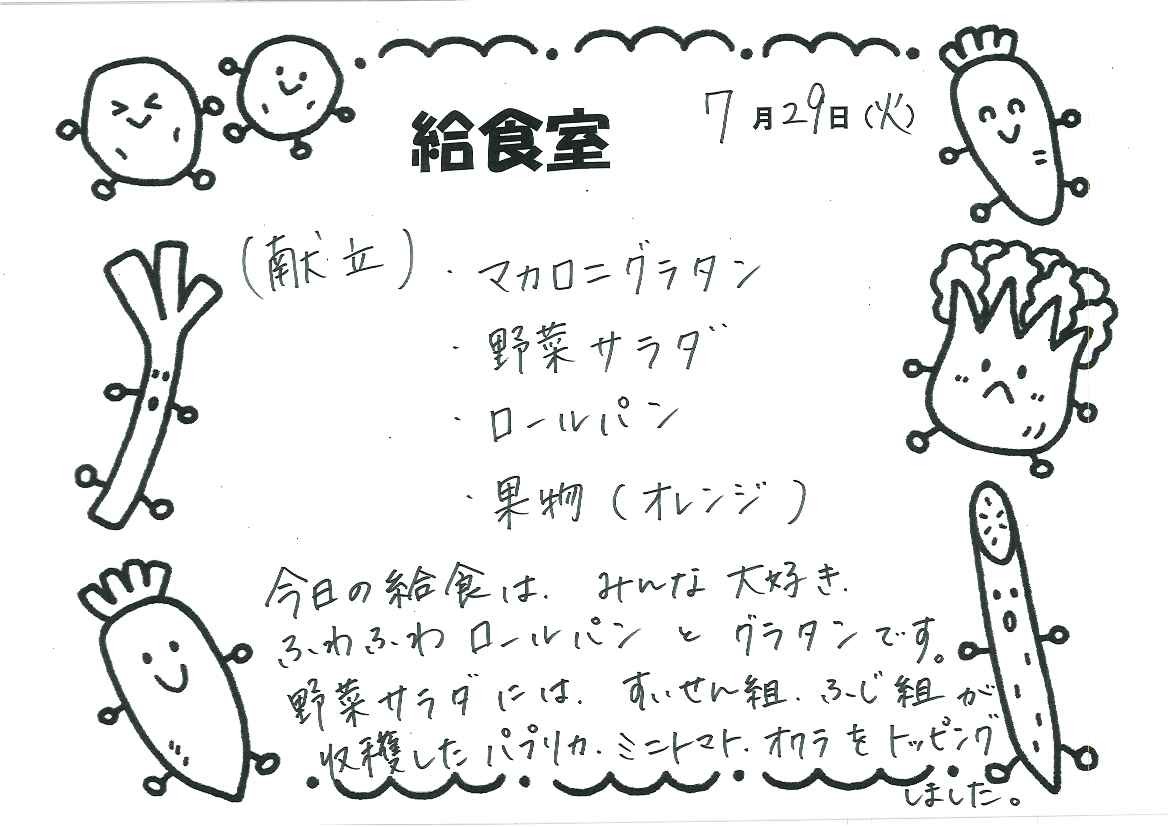 給食室
7月29日(火)
(献立)
・マカロニグラタン
・野菜サラダ
・ロールパン
・果物(オレンジ)
今日の給食は、みんな大好き、
ふわふわロールパンとグラタンです。
野菜サラダには、すいせん組、ふじ組が
収穫したパプリカ、ミニトマト、オクラをトッピング
しました。